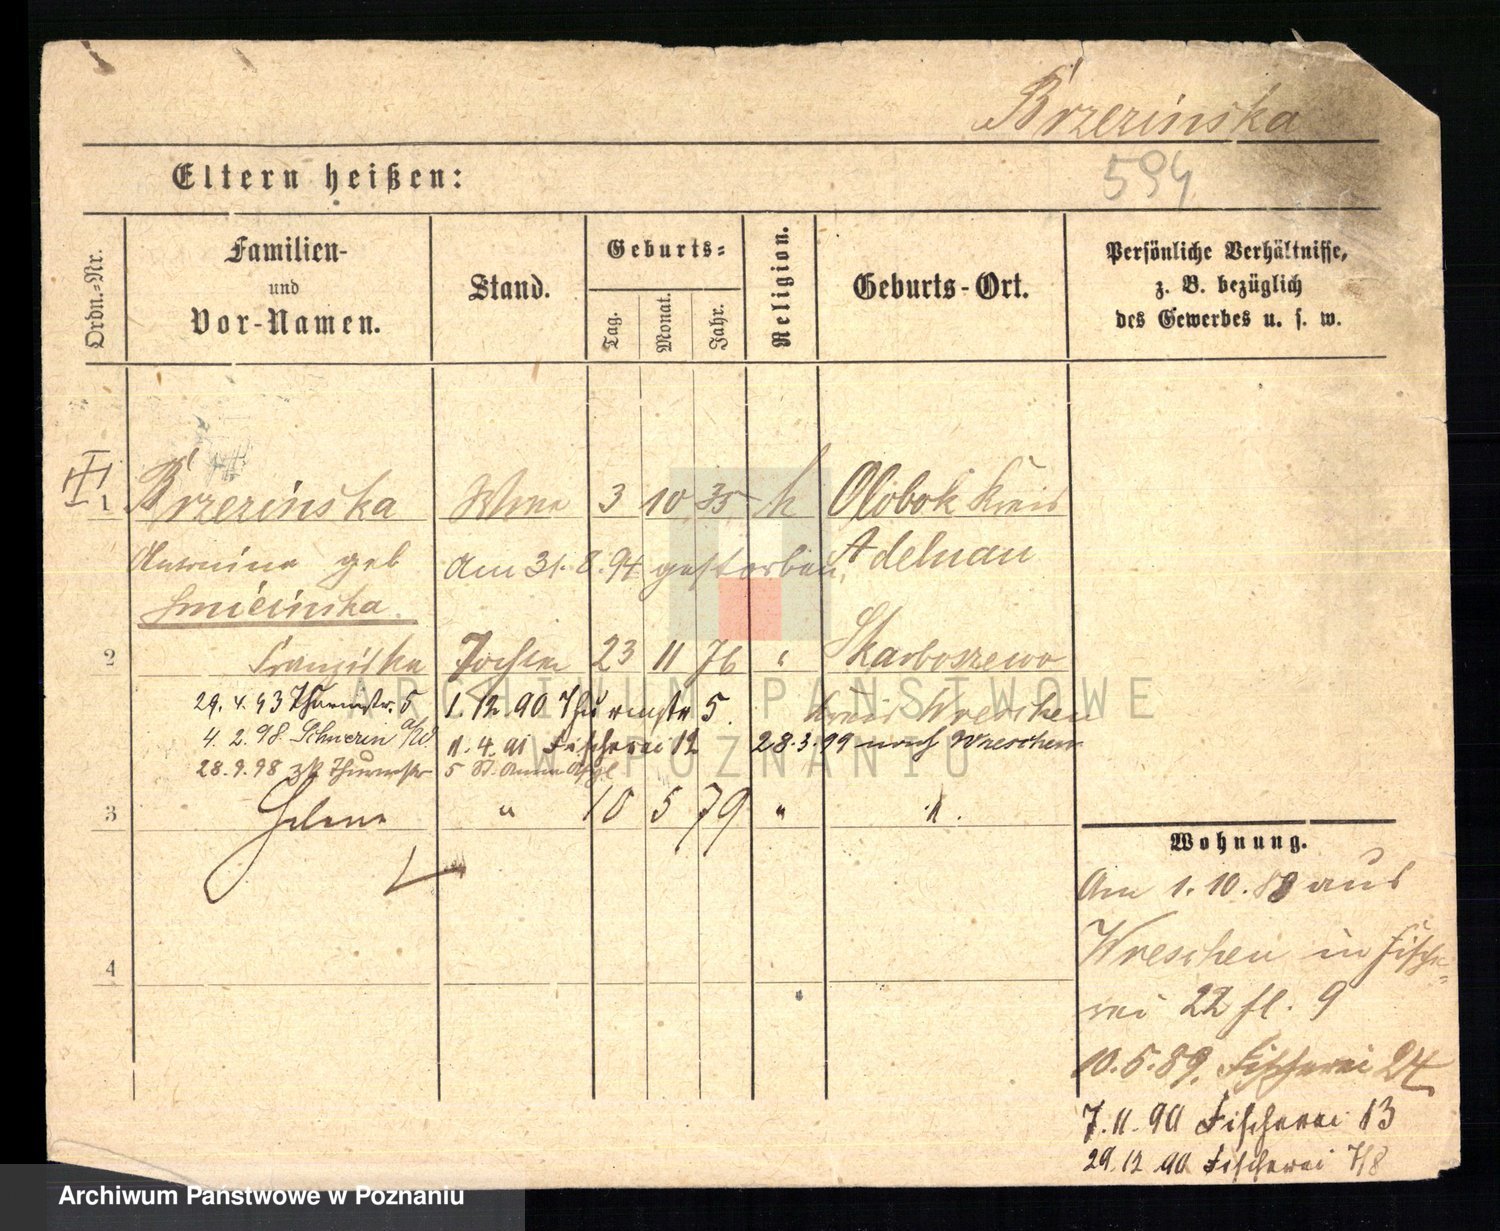 Brzezinska
594
Eltern heißen:
Ordn.-Nr.
Familien-
und
Vor-Namen.
Stand.
Geburts-
Tag.
Monat.
Jahr.
Religion.
Geburts-Ort.
Persönliche Verhältnisse,
z. B. bezüglich
des Gewerbes u. s. w.
1 Brzezinska Wwe 3 10 35 k Olobok Kreis
Antonina geb Am 31.8.94 gestorben. Adelnau
2 Franziska Tochter 23 11 76 " Skarboszewo
29.4.93 Thurmstr. 5 1.12.90 Thurmstr 5. Kreis Wreschen
4.2.98 Schwerin a/W. 11.4.91 Fischerei 12 28.3.99 nach Wreschen
28.9.98 zk Thurmstr 5
3 Helene " 10 5 79 " ".
4
Wohnung.
Am 1.10.88 aus
Wreschen in Fische-
rei 22 fl. 9
10.5.89. Fischerei 24
7.11.90 Fischerei 13
29.12.90 Fischerei 7/8
ARCHIWUM PAŃSTWOWE
W POZNANIU
Archiwum Państwowe w Poznaniu